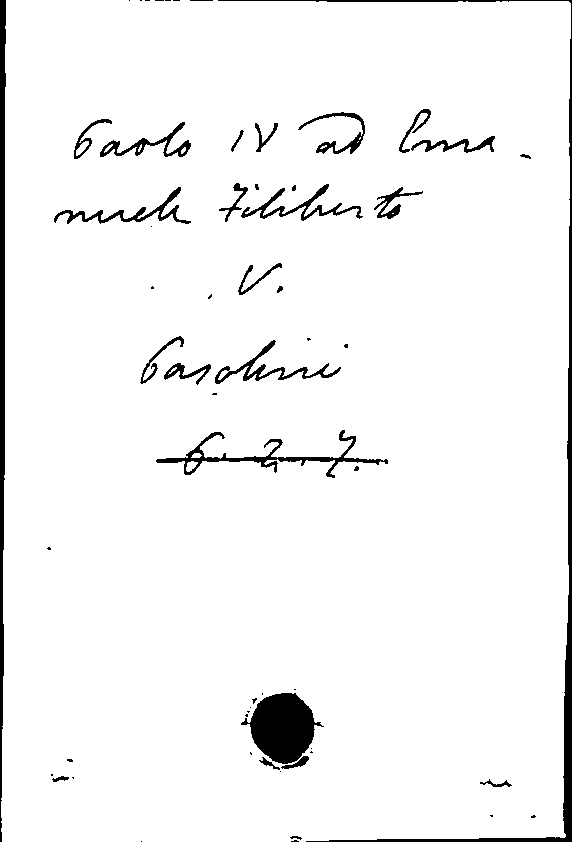 Paolo IV ad Ema-
nuele Filiberto
V.
Pasolini
6. 2. 7.